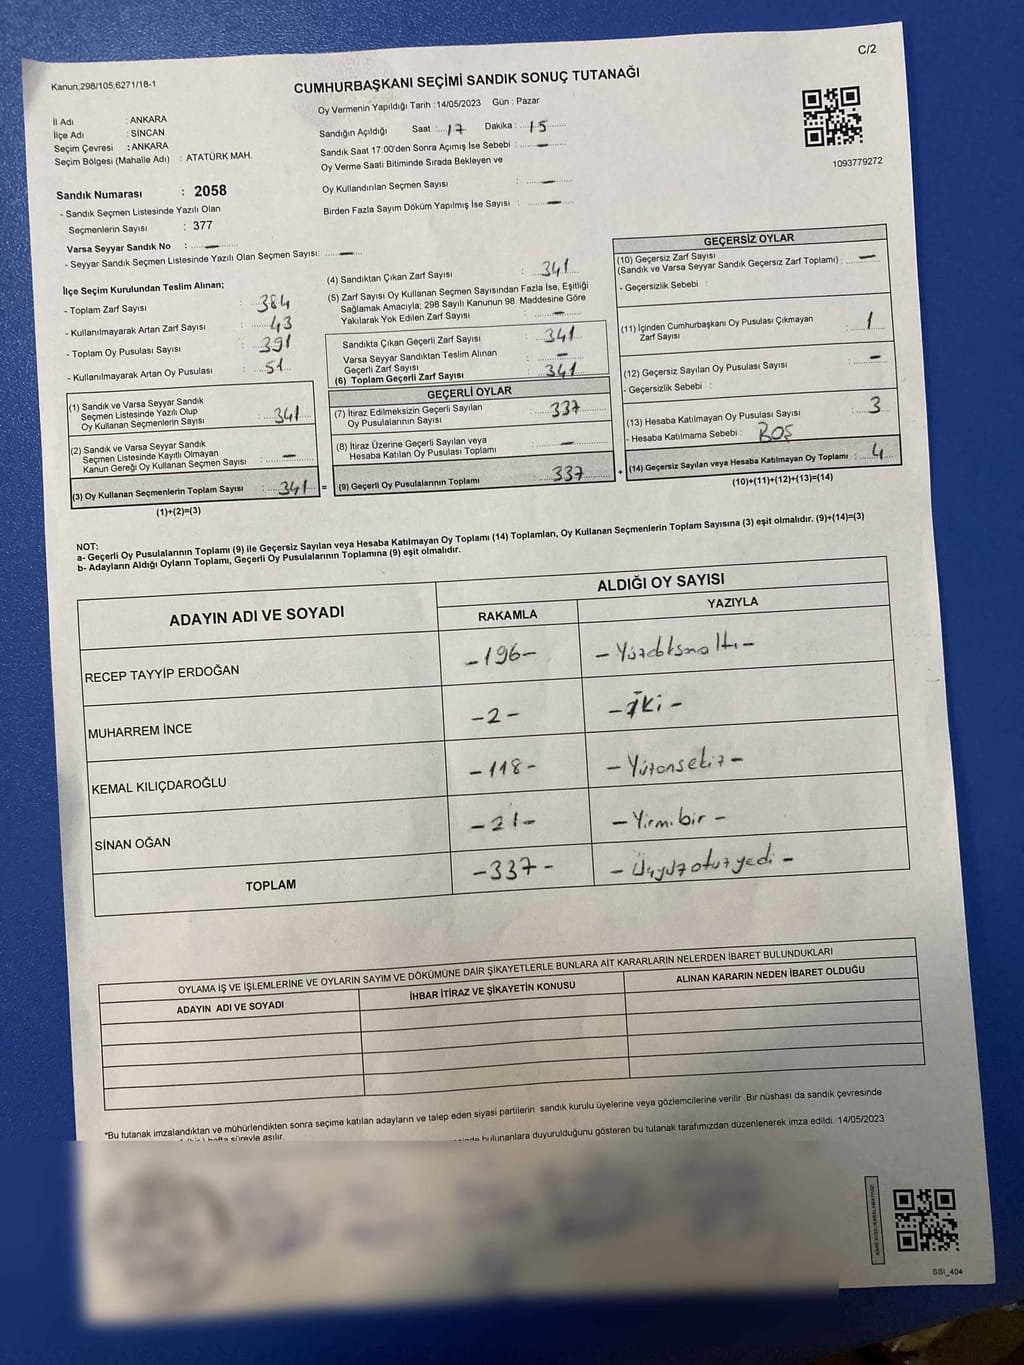 C/2
Kanun,298/105,6271/18-1
CUMHURBAŞKANI SEÇİMİ SANDIK SONUÇ TUTANAĞI
İl Adı : ANKARA
İlçe Adı : SİNCAN
Seçim Çevresi : ANKARA
Seçim Bölgesi (Mahalle Adı) : ATATÜRK MAH.
Sandık Numarası : 2058
- Sandık Seçmen Listesinde Yazılı Olan
Seçmenlerin Sayısı : 377
Varsa Seyyar Sandık No : —
- Seyyar Sandık Seçmen Listesinde Yazılı Olan Seçmen Sayısı: —
Oy Vermenin Yapıldığı Tarih :14/05/2023 Gün : Pazar
Sandığın Açıldığı Saat : 17 Dakika : 15
Sandık Saat 17:00'den Sonra Açımış İse Sebebi : —
Oy Verme Saati Bitiminde Sırada Bekleyen ve
Oy Kullandırılan Seçmen Sayısı : —
Birden Fazla Sayım Döküm Yapılmış İse Sayısı : —
1093779272
İlçe Seçim Kurulundan Teslim Alınan;
- Toplam Zarf Sayısı : 384
- Kullanılmayarak Artan Zarf Sayısı : 43
- Toplam Oy Pusulası Sayısı : 391
- Kullanılmayarak Artan Oy Pusulası : 51
(1) Sandık ve Varsa Seyyar Sandık
Seçmen Listesinde Yazılı Olup
Oy Kullanan Seçmenlerin Sayısı : 341
(2) Sandık ve Varsa Seyyar Sandık
Seçmen Listesinde Kayıtlı Olmayan
Kanun Gereği Oy Kullanan Seçmen Sayısı : —
(3) Oy Kullanan Seçmenlerin Toplam Sayısı : 341 =
(1)+(2)=(3)
(4) Sandıktan Çıkan Zarf Sayısı : 341
(5) Zarf Sayısı Oy Kullanan Seçmen Sayısından Fazla İse, Eşitliği
Sağlamak Amacıyla; 298 Sayılı Kanunun 98. Maddesine Göre
Yakılarak Yok Edilen Zarf Sayısı : —
Sandıkta Çıkan Geçerli Zarf Sayısı : 341
Varsa Seyyar Sandıktan Teslim Alınan
Geçerli Zarf Sayısı : —
(6) Toplam Geçerli Zarf Sayısı : 341
GEÇERLİ OYLAR
(7) İtiraz Edilmeksizin Geçerli Sayılan
Oy Pusulalarının Sayısı : 337
(8) İtiraz Üzerine Geçerli Sayılan veya
Hesaba Katılan Oy Pusulası Toplamı : —
(9) Geçerli Oy Pusulalarının Toplamı : 337 +
GEÇERSİZ OYLAR
(10) Geçersiz Zarf Sayısı
(Sandık ve Varsa Seyyar Sandık Geçersiz Zarf Toplamı) : —
- Geçersizlik Sebebi :
(11) İçinden Cumhurbaşkanı Oy Pusulası Çıkmayan
Zarf Sayısı : 1
(12) Geçersiz Sayılan Oy Pusulası Sayısı : —
- Geçersizlik Sebebi :
(13) Hesaba Katılmayan Oy Pusulası Sayısı : 3
- Hesaba Katılmama Sebebi : BOŞ
(14) Geçersiz Sayılan veya Hesaba Katılmayan Oy Toplamı : 4
(10)+(11)+(12)+(13)=(14)
NOT:
a- Geçerli Oy Pusulalarının Toplamı (9) ile Geçersiz Sayılan veya Hesaba Katılmayan Oy Toplamı (14) Toplamları, Oy Kullanan Seçmenlerin Toplam Sayısına (3) eşit olmalıdır. (9)+(14)=(3)
b- Adayların Aldığı Oyların Toplamı, Geçerli Oy Pusulalarının Toplamına (9) eşit olmalıdır.
ADAYIN ADI VE SOYADI
ALDIĞI OY SAYISI
RAKAMLA YAZIYLA
RECEP TAYYİP ERDOĞAN -196- - Yüzdoksanaltı -
MUHARREM İNCE -2- - İki -
KEMAL KILIÇDAROĞLU -118- - Yüzonsekiz -
SİNAN OĞAN -21- - Yirmibir -
TOPLAM -337- - Üçyüzotuzyedi -
OYLAMA İŞ VE İŞLEMLERİNE VE OYLARIN SAYIM VE DÖKÜMÜNE DAİR ŞİKAYETLERLE BUNLARA AİT KARARLARIN NELERDEN İBARET BULUNDUKLARI
ADAYIN ADI VE SOYADI İHBAR İTİRAZ VE ŞİKAYETİN KONUSU ALINAN KARARIN NEDEN İBARET OLDUĞU
*Bu tutanak imzalandıktan ve mühürlendikten sonra seçime katılan adayların ve talep eden siyasi partilerin sandık kurulu üyelerine veya gözlemcilerine verilir .Bir nüshası da sandık çevresinde
hafta süreyle asılır.
bulunanlara duyurulduğunu gösteren bu tutanak tarafımızdan düzenlenerek imza edildi. 14/05/2023
SSI_404